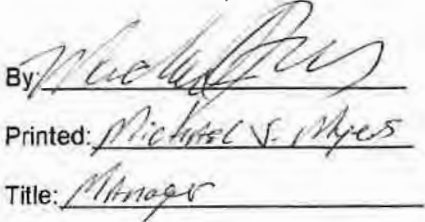 By:
Printed: Michael S. Myers
Title: Manager